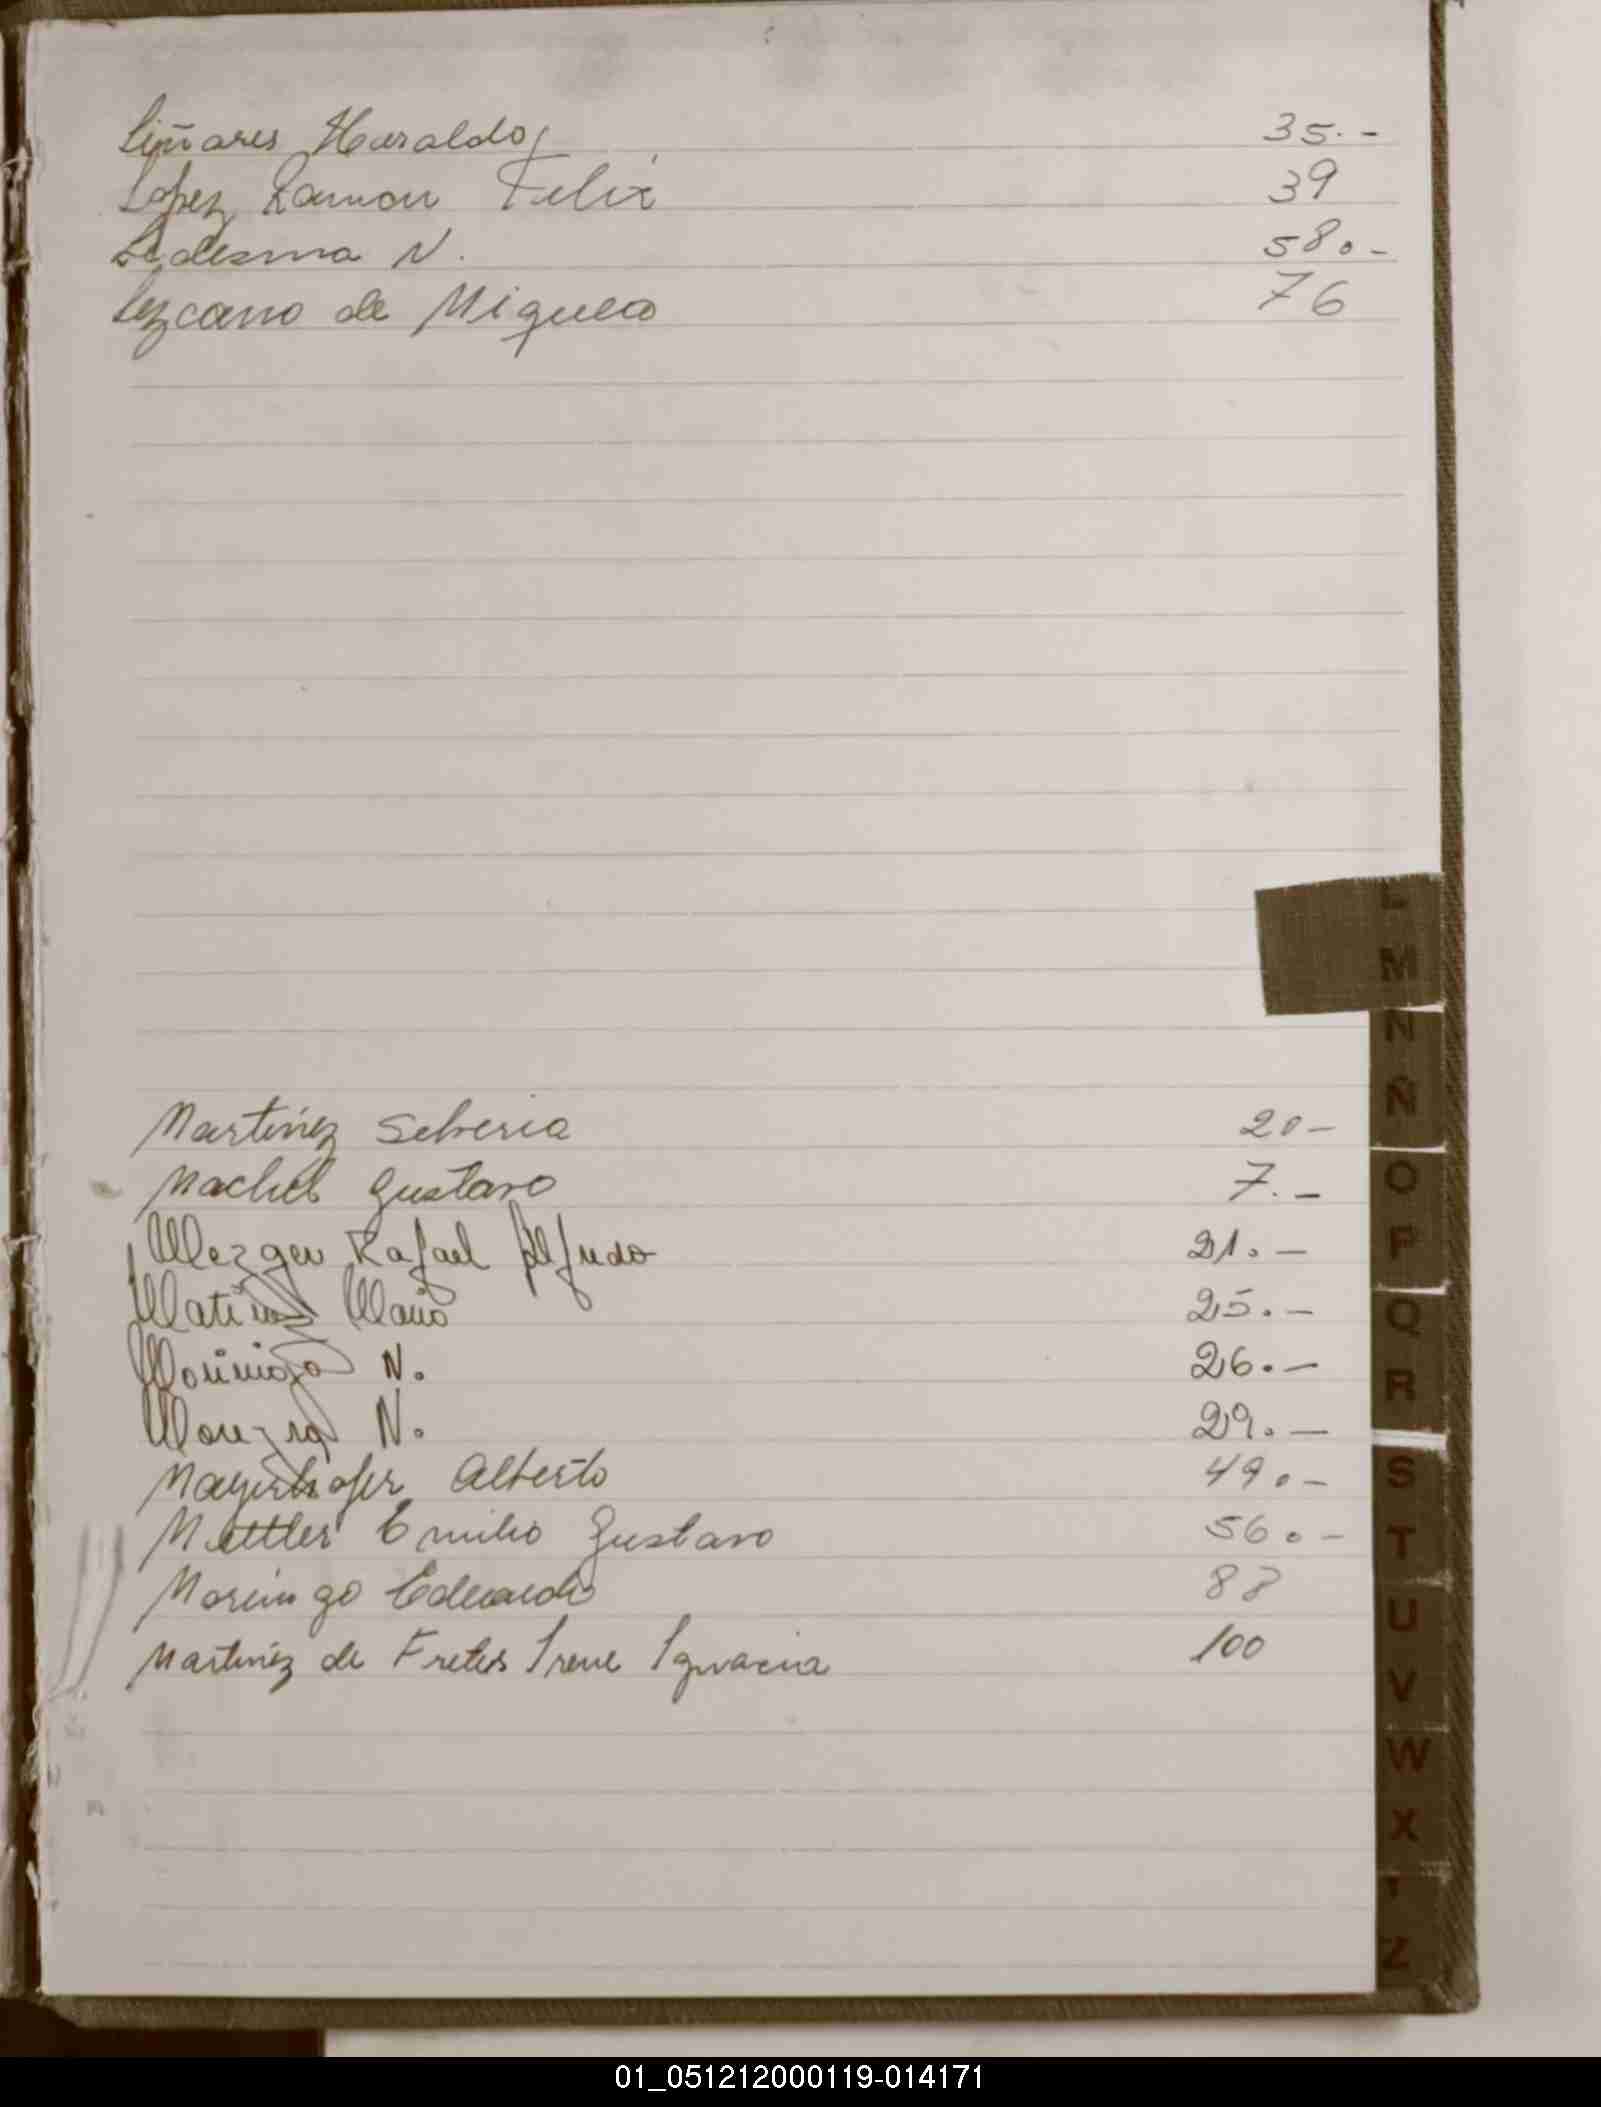 Liñares Haraldo 35.-
Lopez Ramon Felix 39
Ledesma N. 58.-
Lezcano de Migueles 76
L
M
N
Ñ
Martinez Seberia 20-
Machel Gustavo 7.-
O
Mezger Rafael Alfredo 21.-
P
Matinez Mario 25.-
Q
Morinigo N. 26.-
R
N. 29.-
Mayerhofer Alberto 49.-
S
Mettler Emilio Gustavo 56.-
T
Moringo Eduardo 88
U
Martinez de Fretes Irene Ignacia 100
V
W
X
Z
01_051212000119-014171